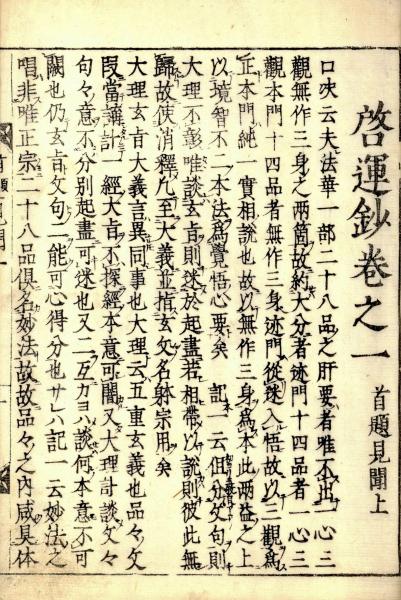 啓運鈔卷之一 首題見聞上
口决云夫法華一部二十八品之肝要者唯不出一心三
觀無作三身之兩箇故約大分者迹門十四品者一心三
觀本門十四品者無作三身迹門從迷入悟故以三觀爲
正本門純一實相說也故以無作三身爲本此兩益之上
以境智不二本法爲覺悟心要矣 記一云但分文句則
大理不彰唯談玄旨則迷於起盡若相帶以說則彼此無
歸故使消釋凡至大義並指玄文名躰宗用矣
大理玄旨大義言異同事也大理云五重玄義也品々文
段當講計一經大旨不探經本意可闇又大理計談文々
句々意不分別起盡可迷也又二互カヨハ談何本意不可
闕也仍玄言文句二能可心得分也サレハ記一云妙法之
唱非唯正宗二十八品俱名妙法故故品々之內咸具体